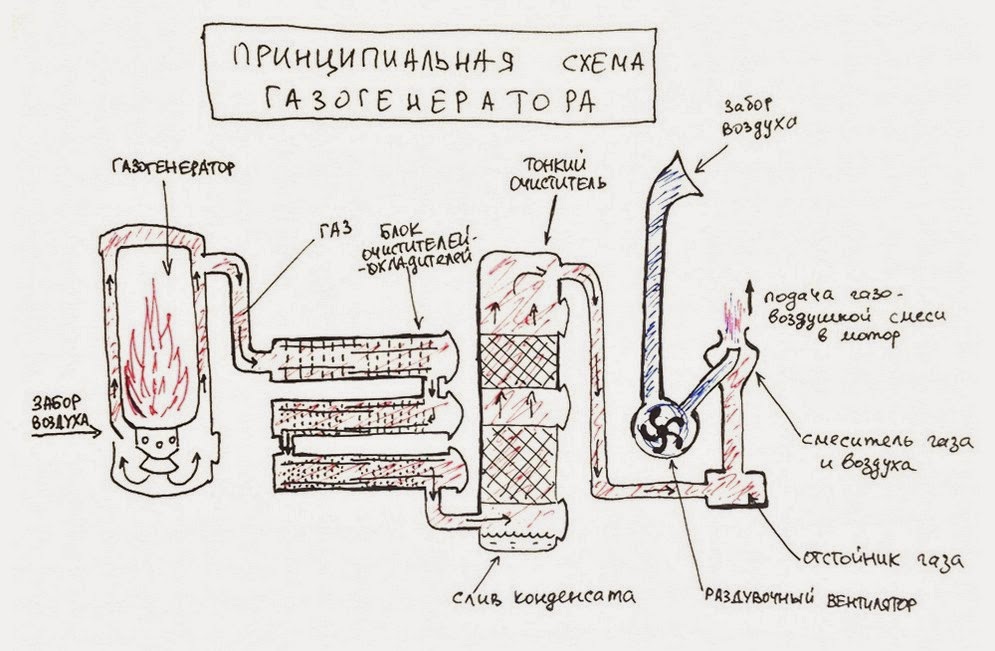 ПРИНЦИПИАЛЬНАЯ СХЕМА
ГАЗОГЕНЕРАТОРА
ЗАБОР
ВОЗДУХА
ГАЗОГЕНЕРАТОР
ТОНКИЙ
ОЧИСТИТЕЛЬ
ГАЗ
БЛОК
ОЧИСТИТЕЛЕЙ-
-ОХЛАДИТЕЛЕЙ
подача газо-
воздушкой смеси
в мотор
ЗАБОР
ВОЗДУХА
смеситель газа
и воздуха
отстойник газа
слив конденсата
РАЗДУВОЧНЫЙ ВЕНТИЛЯТОР